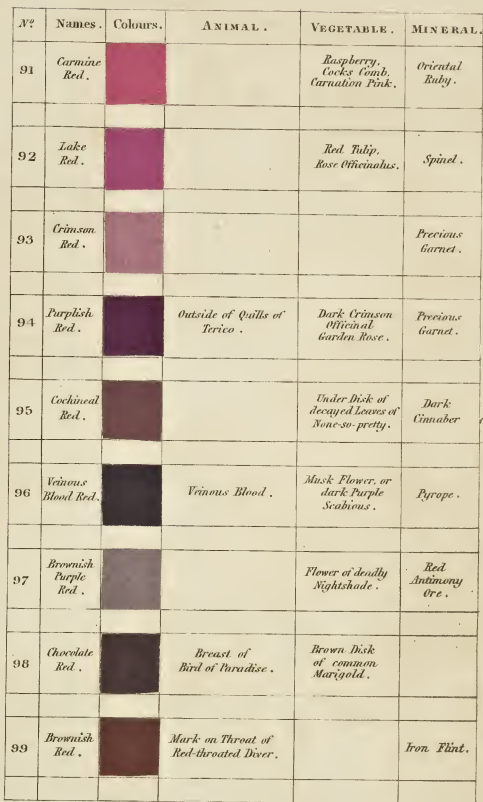 Nº Names. Colours. ANIMAL. VEGETABLE. MINERAL.
91
Carmine
Red.
Raspberry,
Cocks Comb,
Carnation Pink.
Oriental
Ruby.
92
Lake
Red.
Red Tulip,
Rose Officinalus.
Spinel.
93
Crimson
Red.
Precious
Garnet.
94
Purplish
Red.
Outside of Quills of
Terico.
Dark Crimson
Officinal
Garden Rose.
Precious
Garnet.
95
Cochineal
Red.
Under Disk of
decayed Leaves of
None-so-pretty.
Dark
Cinnaber
96
Veinous
Blood Red.
Veinous Blood.
Musk Flower, or
dark Purple
Scabious.
Pyrope.
97
Brownish
Purple
Red.
Flower of deadly
Nightshade.
Red
Antimony
Ore.
98
Chocolate
Red.
Breast of
Bird of Paradise.
Brown Disk
of common
Marigold.
99
Brownish
Red.
Mark on Throat of
Red-throated Diver.
Iron Flint.